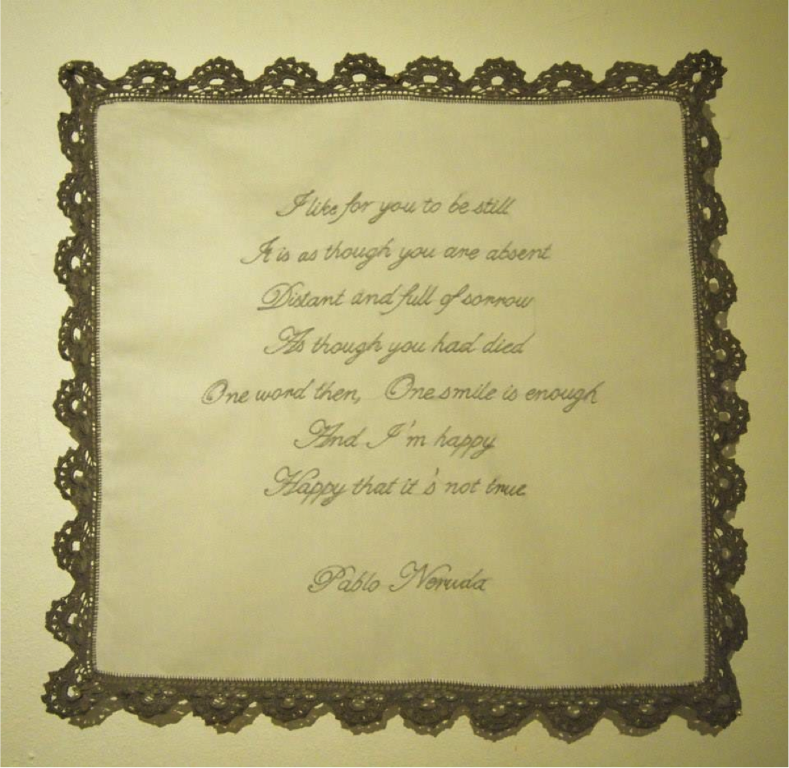 I like for you to be still
It is as though you are absent
Distant and full of sorrow
As though you had died
One word then, One smile is enough
And I'm happy
Happy that it's not true
Pablo Neruda